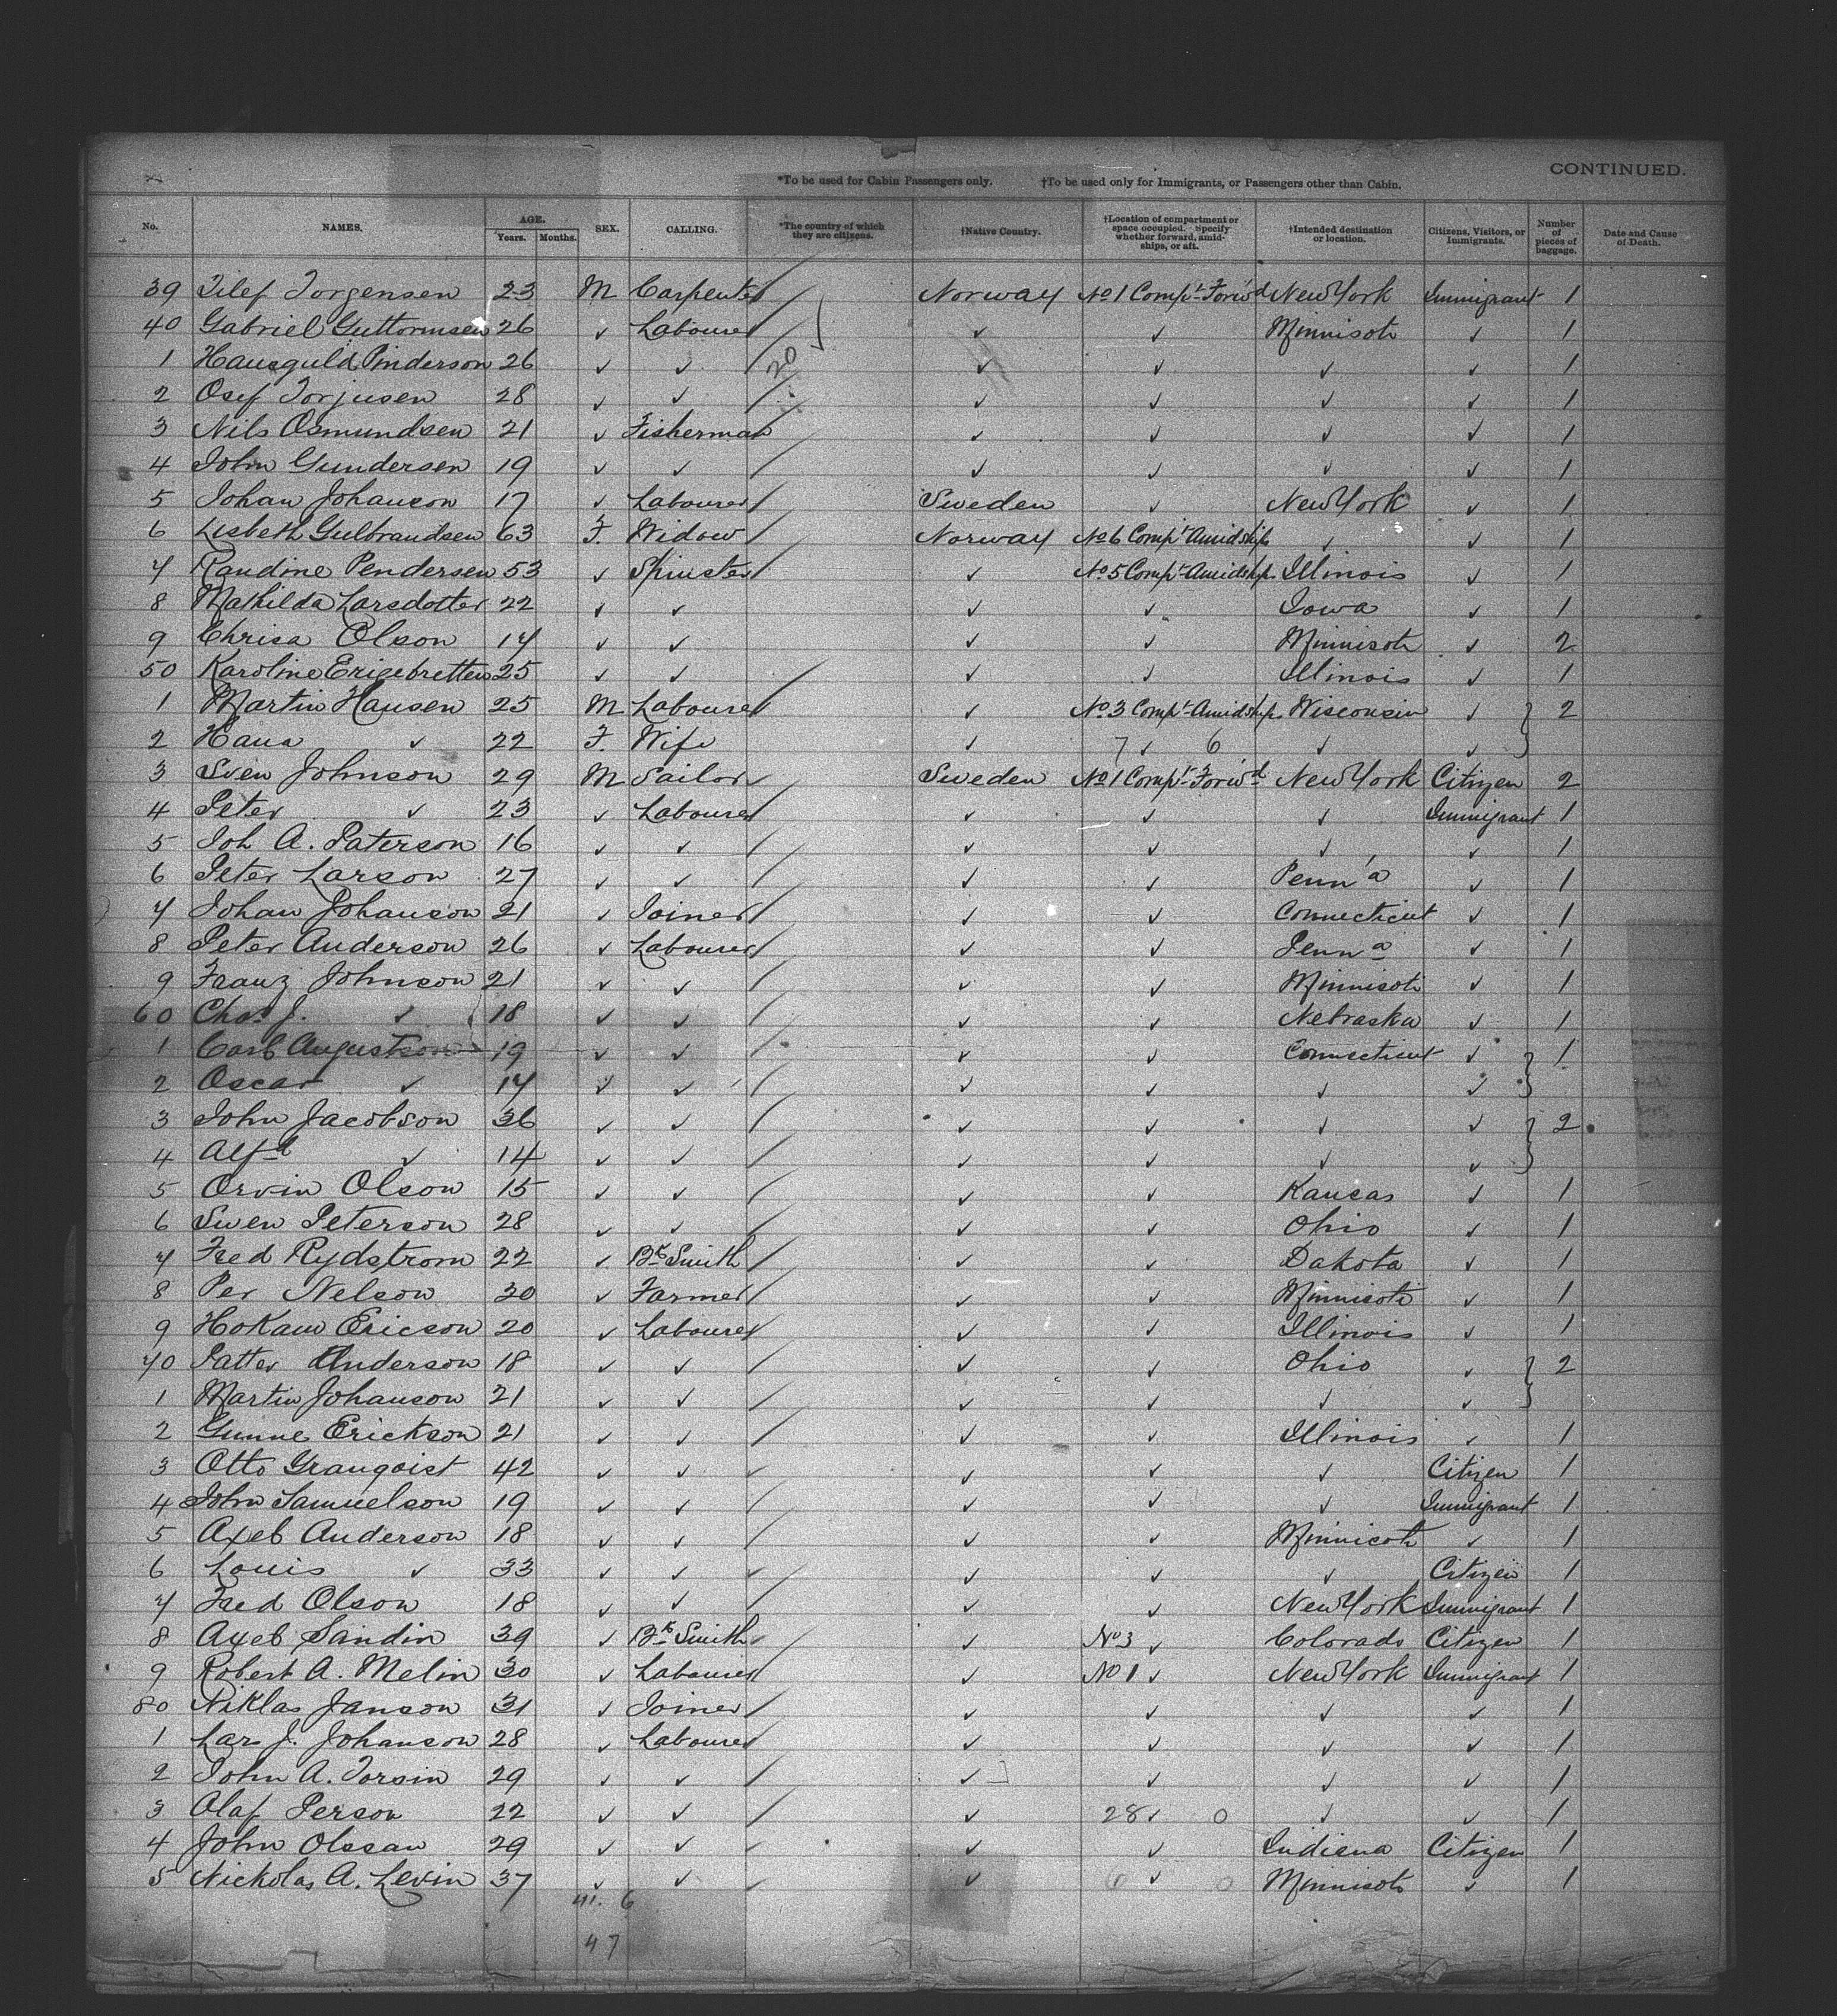 CONTINUED.
*To be used for Cabin Passengers only. †To be used only for Immigrants, or Passengers other than Cabin.
No. NAMES. AGE. Years. Months. SEX. CALLING. *The country of which they are citizens. †Native Country. †Location of compartment or space occupied. Specify whether forward, amidships, or aft. †Intended destination or location. Citizens, Visitors, or Immigrants. Number of pieces of baggage. Date and Cause of Death.
39 Tilef Torgensen 23 M Carpenter Norway No 1 Compt Forwd New York Immigrant 1
40 Gabriel Guttormsen 26 ✓ Labourer ✓ ✓ Minnisota ✓ 1
1 Hausguld Pinderson 26 ✓ ✓ 20 ✓ ✓ ✓ ✓ 1
2 Osef Torjusen 28 ✓ ✓ ✓ ✓ ✓ ✓ 1
3 Nils Osmundsen 21 ✓ Fisherman ✓ ✓ ✓ ✓ 1
4 John Gundersen 19 ✓ ✓ ✓ ✓ ✓ ✓ 1
5 Johan Johanson 17 ✓ Labourer Sweden ✓ New York ✓ 1
6 Lisbeth Gulbrandsen 63 F. Widow Norway No 6 Compt Amidships ✓ ✓ 1
7 Randine Pendersen 53 ✓ Spinster ✓ No 5 Compt Amidship. Illinois ✓ 1
8 Mathilda Larsdotter 22 ✓ ✓ ✓ ✓ Iowa ✓ 1
9 Chrisa Olson 17 ✓ ✓ ✓ ✓ Minnisota ✓ 2
50 Karoline Erigebretten 25 ✓ ✓ ✓ ✓ Illinois ✓ 1
1 Martin Hansen 25 M Labourer ✓ No 3 Compt Amidship. Wisconsin ✓ } 2
2 Hana ✓ 22 F. Wife ✓ 7 ✓ 6 ✓ ✓
3 Sven Johnson 29 M Sailor Sweden No 1 Compt Forwd New York Citizen 2
4 Peter ✓ 23 ✓ Labourer ✓ ✓ ✓ Immigrant 1
5 Joh A. Paterson 16 ✓ ✓ ✓ ✓ ✓ ✓ 1
6 Peter Larson 27 ✓ ✓ ✓ ✓ Penna ✓ 1
7 Johan Johanson 21 ✓ Joiner ✓ ✓ Connecticut ✓ 1
8 Peter Anderson 26 ✓ Labourer ✓ ✓ Penna ✓ 1
9 Franz Johnson 21 ✓ ✓ ✓ ✓ Minnisota ✓ 1
60 Chas J. ✓ 18 ✓ ✓ ✓ ✓ Nebraska ✓ 1
1 Carl Augustson 19 ✓ ✓ ✓ ✓ Connecticut ✓ } 1
2 Oscar ✓ 17 ✓ ✓ ✓ ✓ ✓ ✓
3 John Jacobson 36 ✓ ✓ ✓ ✓ ✓ ✓ } 2
4 Alfd ✓ 14 ✓ ✓ ✓ ✓ ✓ ✓
5 Orvin Olson 15 ✓ ✓ ✓ ✓ Kansas ✓ 1
6 Swen Peterson 28 ✓ ✓ ✓ ✓ Ohio ✓ 1
7 Fred Rydstrom 22 ✓ Bk Smith ✓ ✓ Dakota ✓ 1
8 Per Nelson 30 ✓ Farmer ✓ ✓ Minnisota ✓ 1
9 Hokan Ericson 20 ✓ Labourer ✓ ✓ Illinois ✓ 1
70 Patter Anderson 18 ✓ ✓ ✓ ✓ Ohio ✓ } 2
1 Martin Johanson 21 ✓ ✓ ✓ ✓ ✓ ✓
2 Gunne Erickson 21 ✓ ✓ ✓ ✓ Illinois ✓ 1
3 Otto Granqvist 42 ✓ ✓ ✓ ✓ ✓ Citizen 1
4 John Samuelson 19 ✓ ✓ ✓ ✓ ✓ Immigrant 1
5 Axel Anderson 18 ✓ ✓ ✓ ✓ Minnisota ✓ 1
6 Louis ✓ 33 ✓ ✓ ✓ ✓ ✓ Citizen 1
7 Fred Olson 18 ✓ ✓ ✓ ✓ New York Immigrant 1
8 Axel Sandin 39 ✓ Bk Smith ✓ No 3 ✓ Colorado Citizen 1
9 Robert A. Melin 30 ✓ Labourer ✓ No 1 ✓ New York Immigrant 1
80 Niklas Janson 31 ✓ Joiner ✓ ✓ ✓ ✓ 1
1 Lars J. Johanson 28 ✓ Labourer ✓ ✓ ✓ ✓ 1
2 John A. Torsin 29 ✓ ✓ ✓ ✓ ✓ ✓ 1
3 Olaf Person 22 ✓ ✓ ✓ 28 ✓ 0 ✓ ✓ 1
4 John Olssan 29 ✓ ✓ ✓ ✓ Indiana Citizen 1
5 Nickolas A. Levin 37 ✓ ✓ ✓ 6 ✓ 0 Minnisota ✓ 1
41. 6
47